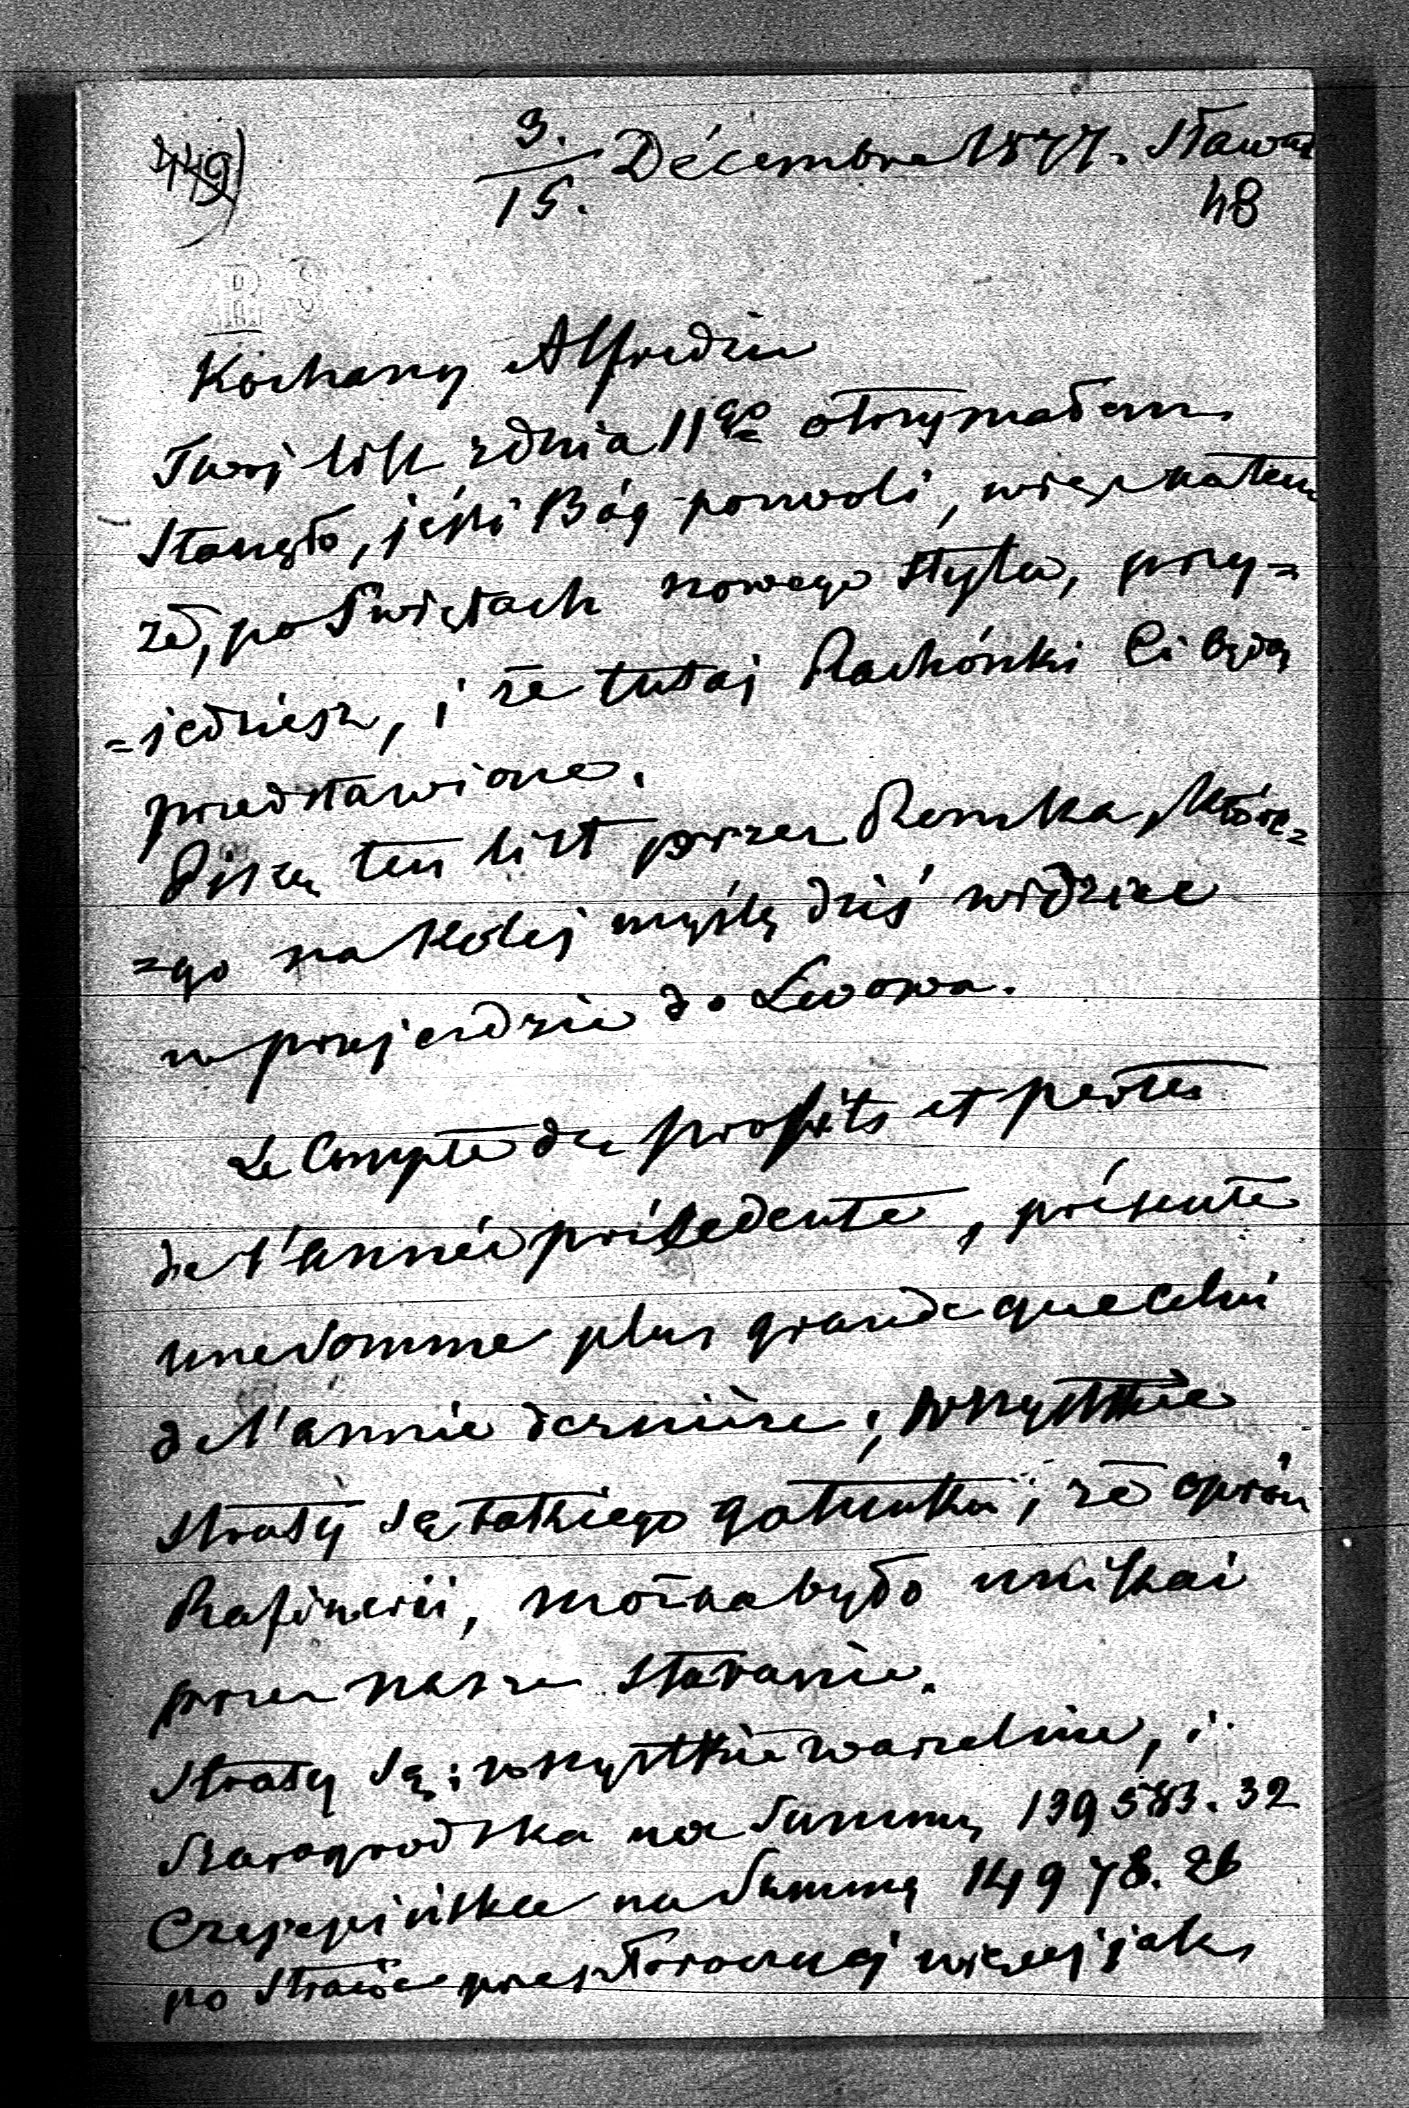 449)
3./15. Décembre 1877. Sławuta
48
R S
Kochany Alfredzie
Twój list z dnia 11go otrzymałem
Stanęło, jeśli Bóg pozwoli, więc natem
że, po Świętach nowego stylu, przy=
=jedziesz, i że tutaj Rachónki Ci będą
przedstawione.
Piszę ten list przez Romka, któré=
=go na Kolej myślę dziś widziec
w przejezdzie do Lwowa.
Le Compte des profits et pertes
de l'année précedente, présente
une somme plus grande que celui
de l'année dernière; wszystkie
straty są takiego gatunku, że oprócz
Rafinerii, można było unikać
przez nasze staranie.
Straty są: wszystkie warzelnie, i
Szarogrodska na Summę 139583.32
Czepepińska na Summę 14978.26
po stracie przeszłorocznej więcej jak